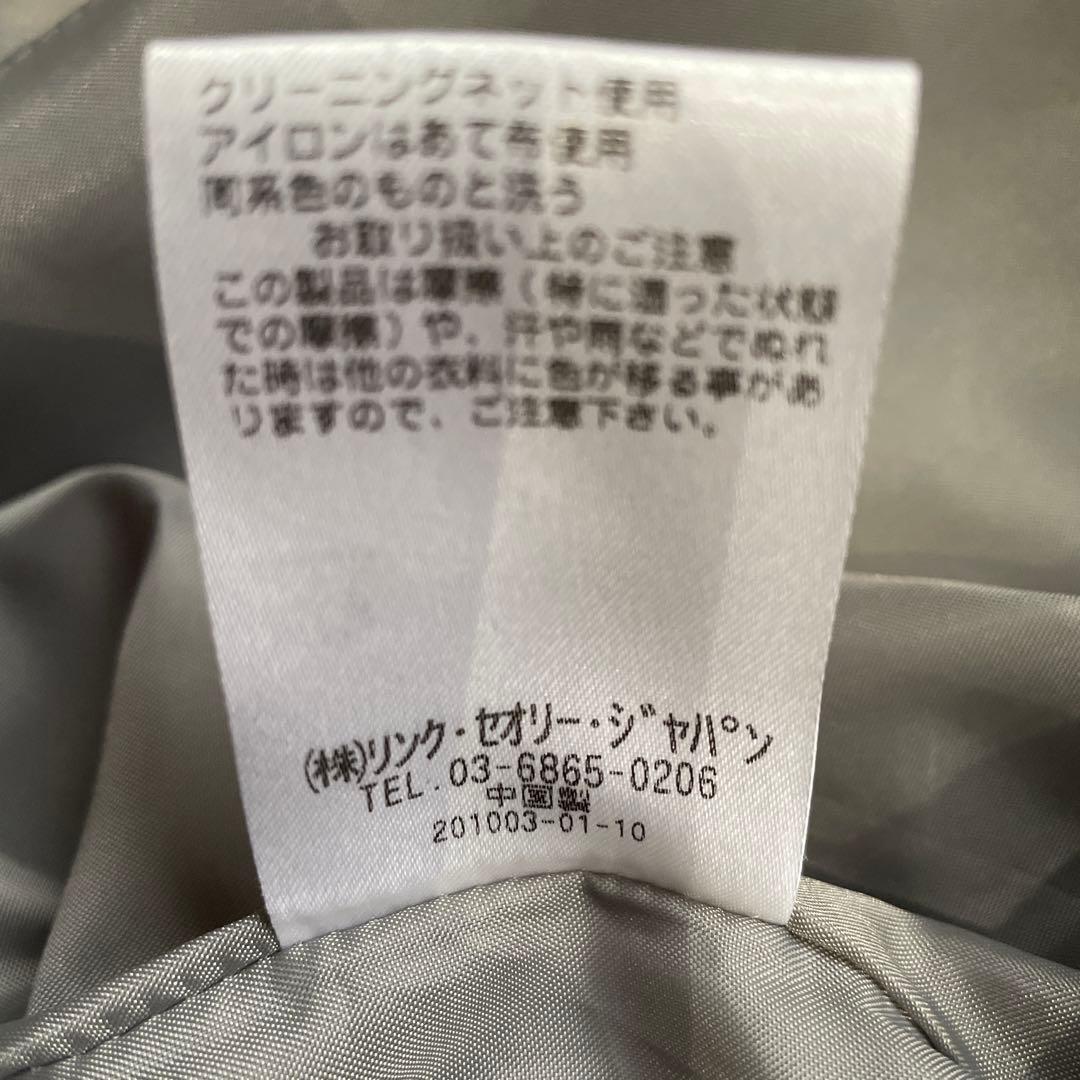 クリーニングネット使用
アイロンはあて布使用
同系色のものと洗う
お取り扱い上のご注意
この製品は摩擦(特に湿った状態
での摩擦)や、汗や雨などでぬれ
た時は他の衣料に色が移る事があ
りますので、ご注意下さい。
(株)リンク・セオリー・ジャパン
TEL.03-6865-0206
中国製
201003-01-10